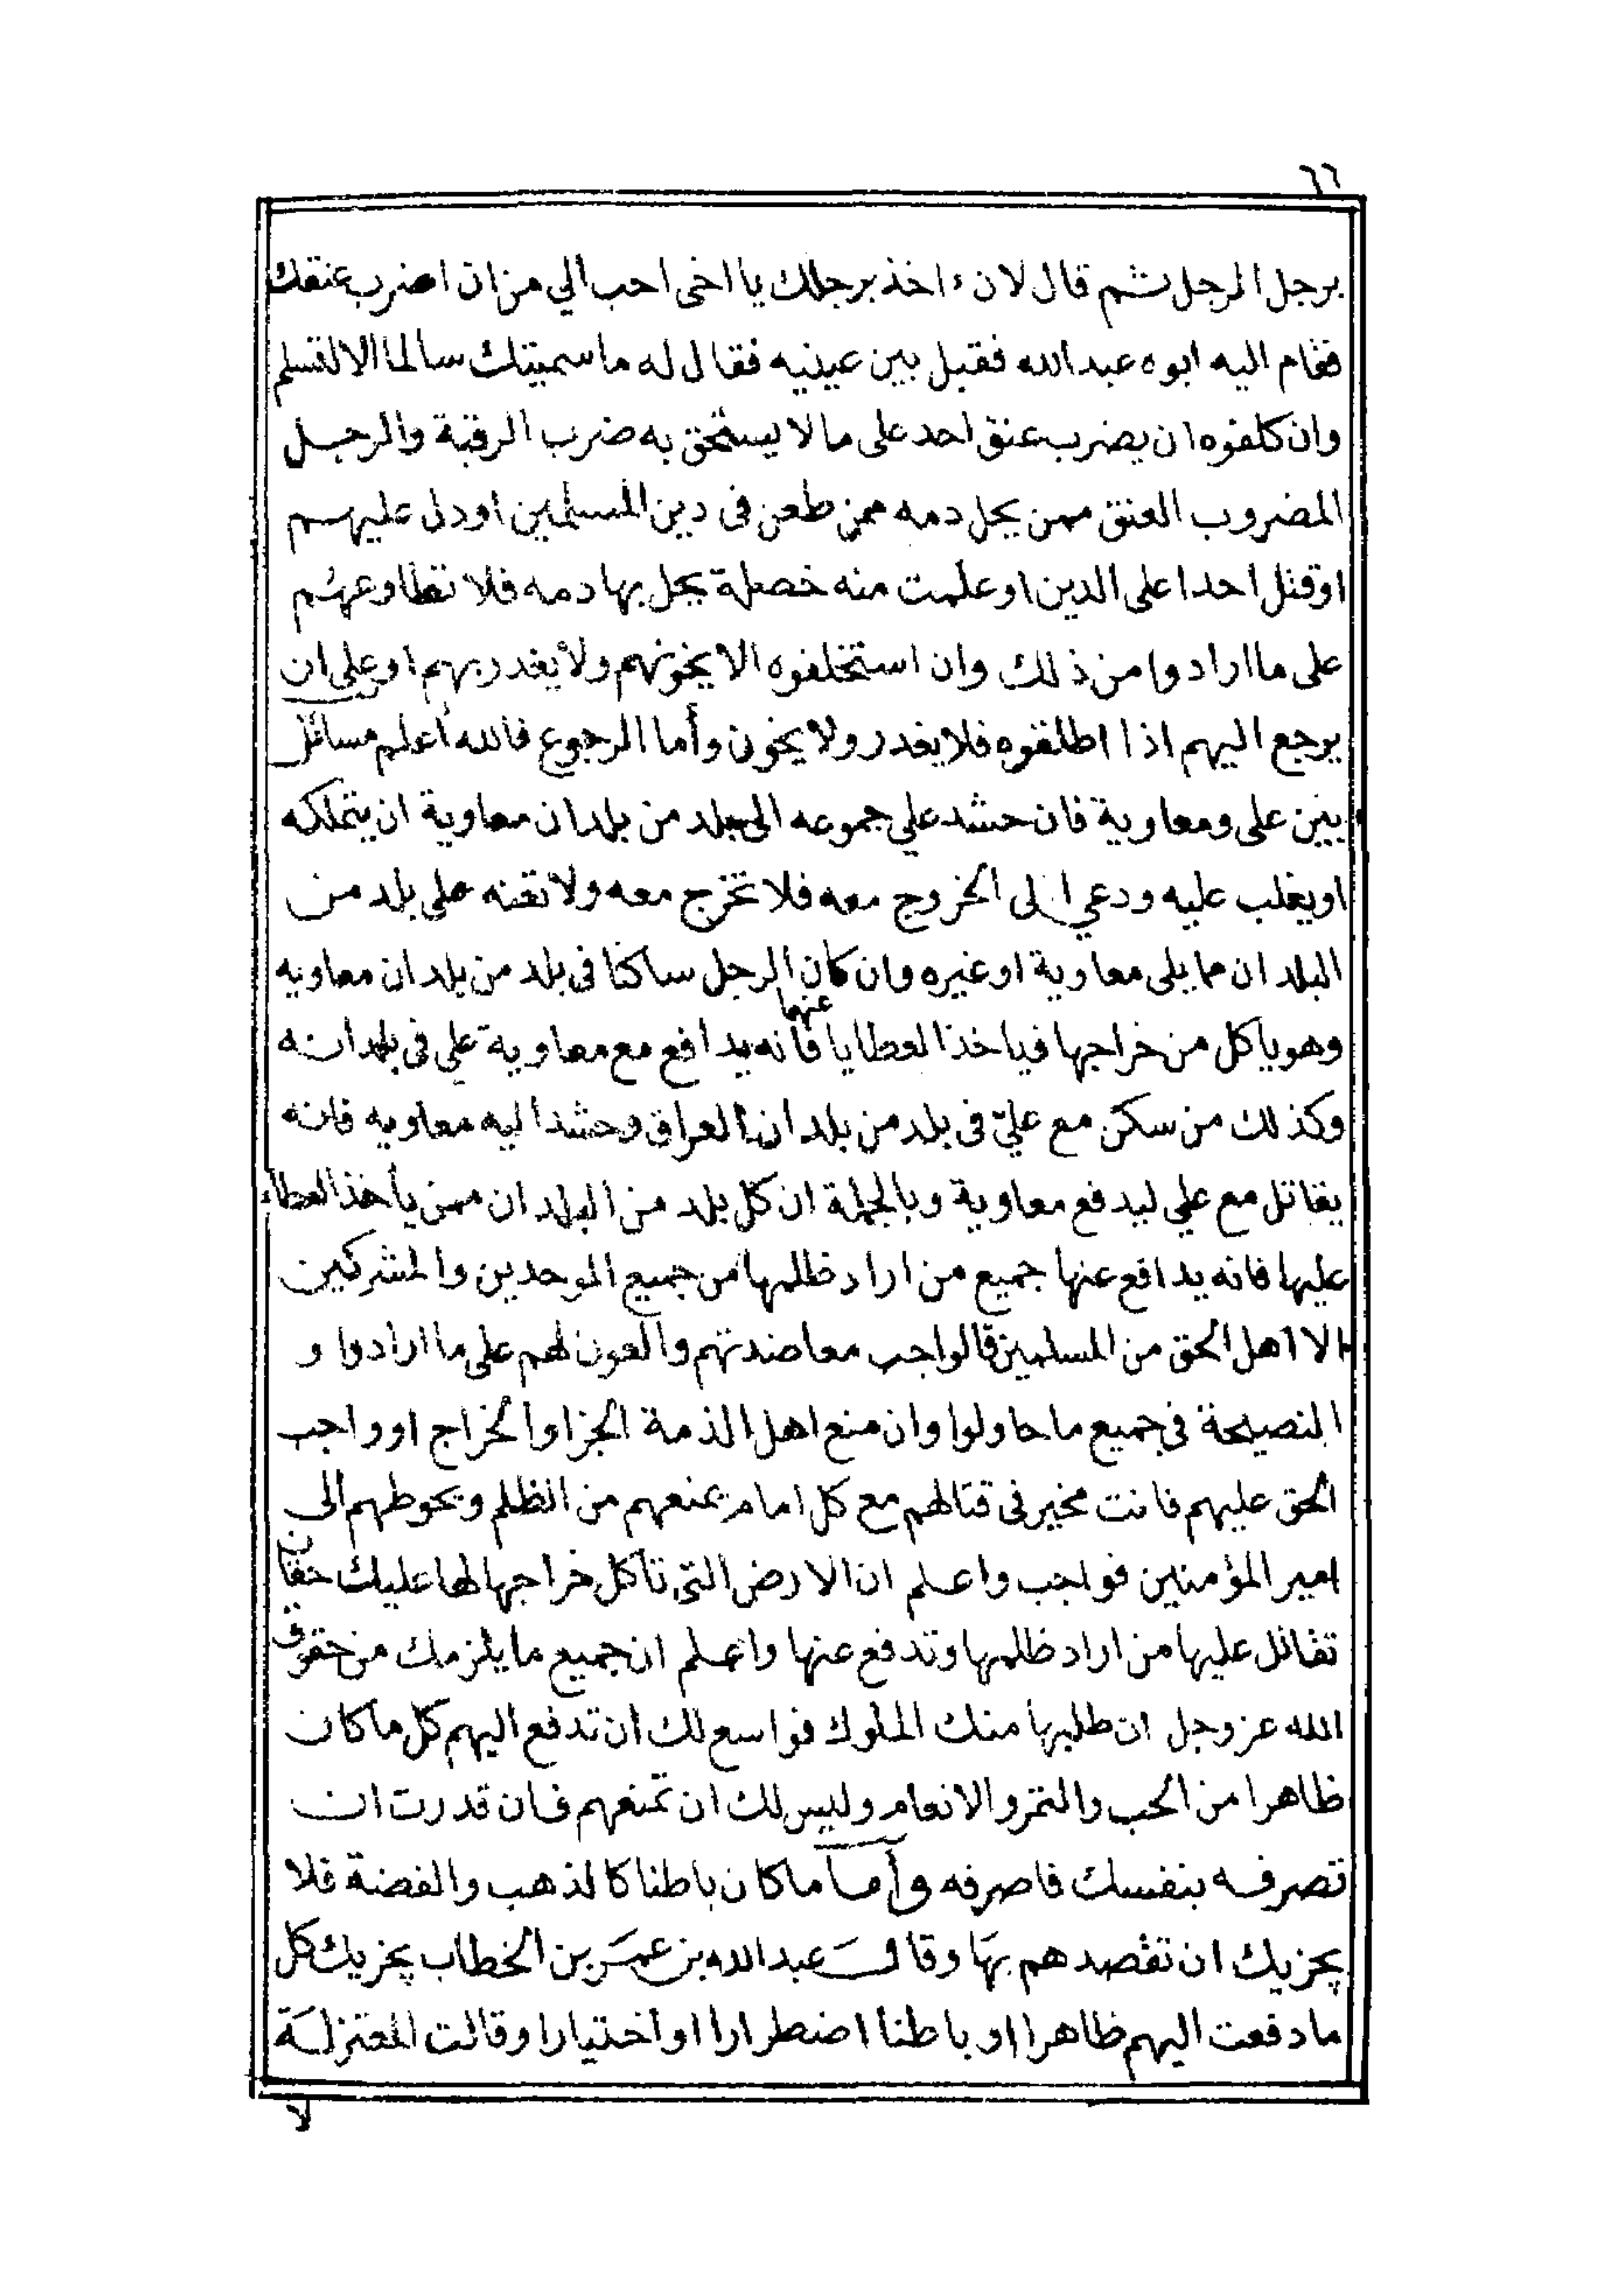 ٦٦
برجل الرجل ثم قال لانء اخذ برجلك يا اخى احب الي من ان اضرب عنقك
فقام اليه ابوه عبدالله فقبل بين عينيه فقال له ما سميتك سالما الا لتسلم
وان كلفوه ان يضرب عنق احد على ما لا يستحق به ضرب الرقبة والرجل
المضروب العنق ممن يحل دمه ممن طعن فى دين المسلمين او دل عليهم
او قتل احدا على الدين او علمت منه خصلة يحل بها دمه فلا تطاوعهم
على ما ارادوا من ذلك وان استحلفوه الا يخونهم ولا يغدر بهم او على ان
يرجع اليهم اذا اطلقوه فلا يغدر ولا يخون وأما الرجوع فالله أعلم مسائل
بين على ومعاوية فان حشد علي جموعه الى بلد من بلدان معاوية ان يتملكه
او يغلب عليه ودعي الى الخروج معه فلا تخرج معه ولا تعنه على بلد من
البلدان مما يلى معاوية او غيره وان كان الرجل ساكنا فى بلد من بلدان معاويه
وهو ياكل من خراجها فياخذ العطايا فانه يدافع مع معاوية علي فى بلدانه
عنها
وكذلك من سكن مع عليّ فى بلد من بلدان العراق وحشد اليه معاويه فانه
يقاتل مع علي ليدفع معاوية وبالجملة ان كل بلد من البلدان ممن يأخذ العطاء
عليها فانه يدافع عنها جميع من اراد ظلمها من جميع الموحدين والمشركين
الا اهل الحق من المسلمين فالواجب معاضدتهم والعون لهم على ما ارادوا و
النصيحة فى جميع ما حاولوا وان منع اهل الذمة الجزا والخراج او واجب
الحق عليهم فانت مخير فى قتالهم مع كل امام يمنعهم من الظلم ويحوطهم الى
امير المؤمنين فواجب واعلم ان الارض التى تأكل خراجها لها عليك حقا ان
تقاتل عليها من اراد ظلمها وتدفع عنها واعلم ان جميع ما يلزمك من حقوق
الله عز وجل ان طلبها منك الملوك فواسع لك ان تدفع اليهم كل ما كان
ظاهرا من الحب والتمر والانعام وليس لك ان تمنعهم فان قدرت ان
تصرفه بنفسك فاصرفه وأما ما كان باطنا كالذهب والفضة فلا
يجزيك ان تقصدهم بها وقال عبدالله بن عمر بن الخطاب يجزيك كل
ما دفعت اليهم ظاهرا او باطنا اضطرارا او اختيارا وقالت المعتزلة
لا